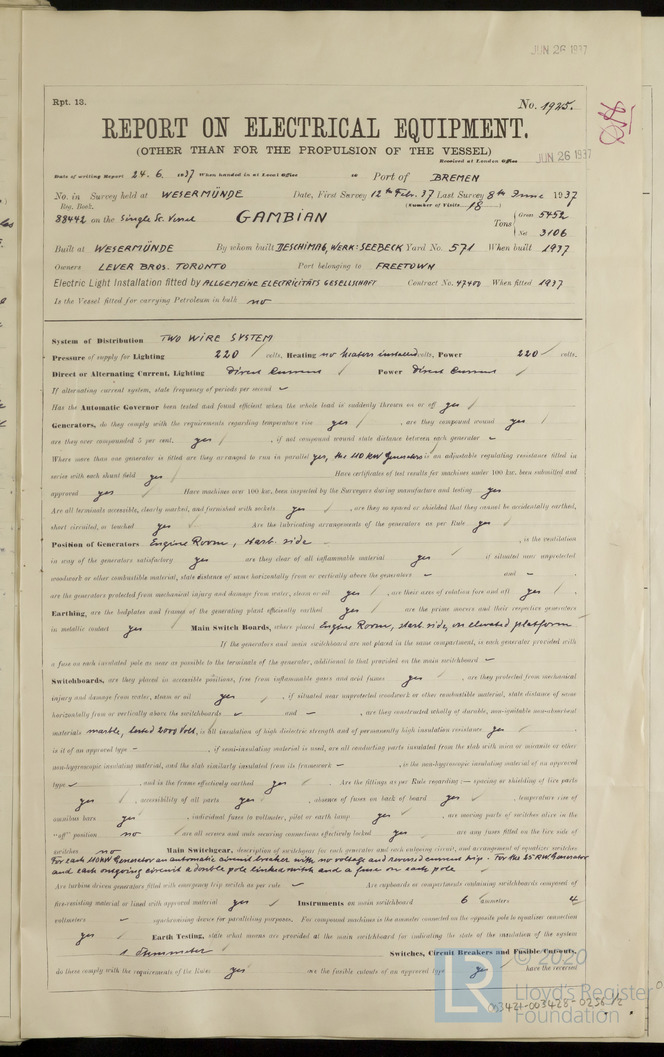 JUN 26 1937
Rpt. 13.
No. 1925.
REPORT ON ELECTRICAL EQUIPMENT.
(OTHER THAN FOR THE PROPULSION OF THE VESSEL)
Received at London Office JUN 26 1937
Date of writing Report 24. 6. 1937 When handed in at Local Office 10 Port of BREMEN
No. in Survey held at WESERMÜNDE Date, First Survey 12th Feb. 37 Last Survey 8th June 1937
Reg. Book. (Number of Visits 18)
88442 on the Single Sc. Vessel GAMBIAN Tons { Gross 5452
Net 3106
Built at WESERMÜNDE By whom built DESCHIMAG, WERK: SEEBECK Yard No. 571 When built 1937
Owners LEVER BROS. TORONTO Port belonging to FREETOWN
Electric Light Installation fitted by ALLGEMEINE ELECTRICITÄTS GESELLSCHAFT Contract No. 47400 When fitted 1937
Is the Vessel fitted for carrying Petroleum in bulk no
System of Distribution TWO WIRE SYSTEM
Pressure of supply for Lighting 220 volts, Heating no heaters installed volts, Power 220 volts.
Direct or Alternating Current, Lighting Direct Current Power Direct Current
If alternating current system, state frequency of periods per second
Has the Automatic Governor been tested and found efficient when the whole load is suddenly thrown on or off yes
Generators, do they comply with the requirements regarding temperature rise yes, are they compound wound yes
are they over compounded 5 per cent. yes, if not compound wound state distance between each generator
Where more than one generator is fitted are they arranged to run in parallel yes, the 110 KW Generators is an adjustable regulating resistance fitted in
series with each shunt field yes Have certificates of test results for machines under 100 kw. been submitted and
approved yes Have machines over 100 kw. been inspected by the Surveyors during manufacture and testing yes
Are all terminals accessible, clearly marked, and furnished with sockets yes, are they so spaced or shielded that they cannot be accidentally earthed,
short circuited, or touched yes Are the lubricating arrangements of the generators as per Rule yes
Position of Generators Engine Room, starb. side, is the ventilation
in way of the generators satisfactory yes are they clear of all inflammable material yes if situated near unprotected
woodwork or other combustible material, state distance of same horizontally from or vertically above the generators - and -
are the generators protected from mechanical injury and damage from water, steam or oil yes, are their axes of rotation fore and aft yes
Earthing, are the bedplates and frames of the generating plant efficiently earthed yes are the prime movers and their respective generators
in metallic contact yes Main Switch Boards, where placed Engine Room, starb. side, on elevated platform
If the generators and main switchboard are not placed in the same compartment, is each generator provided with
a fuse on each insulated pole as near as possible to the terminals of the generator, additional to that provided on the main switchboard
Switchboards, are they placed in accessible positions, free from inflammable gases and acid fumes yes, are they protected from mechanical
injury and damage from water, steam or oil yes, if situated near unprotected woodwork or other combustible material, state distance of same
horizontally from or vertically above the switchboards - and -, are they constructed wholly of durable, non-ignitable non-absorbent
materials marble, tested 2000 Volt, is all insulation of high dielectric strength and of permanently high insulation resistance yes
is it of an approved type -, if semi-insulating material is used, are all conducting parts insulated from the slab with mica or micanite or other
non-hygroscopic insulating material, and the slab similarly insulated from its framework -, is the non-hygroscopic insulating material of an approved
type -, and is the frame effectively earthed yes Are the fittings as per Rule regarding:— spacing or shielding of live parts
yes, accessibility of all parts yes, absence of fuses on back of board yes, temperature rise of
omnibus bars yes, individual fuses to voltmeter, pilot or earth lamp yes are moving parts of switches alive in the
"off" position no are all screws and nuts securing connections effectively locked yes are any fuses fitted on the live side of
switches no Main Switchgear, description of switchgear for each generator and each outgoing circuit, and arrangement of equalizer switches
For each 110 KW Generator an automatic circuit breaker with no voltage and reversed current trip. For the 35 KW Generator
and each outgoing circuit a double pole linked switch and a fuse on each pole
Are turbine driven generators fitted with emergency trip switch as per rule Are cupboards or compartments containing switchboards composed of
fire-resisting material or lined with approved material yes Instruments on main switchboard 6 ammeters 4
voltmeters - synchronising device for paralleling purposes. For compound machines is the ammeter connected on the opposite pole to equaliser connection
yes Earth Testing, state what means are provided at the main switchboard for indicating the state of the insulation of the system
1 Ohmmeter Switches, Circuit Breakers and Fusible Cutouts,
do these comply with the requirements of the Rules yes are the fusible cutouts of an approved type yes have the reversed
© 2020
LR Lloyd's Register
Foundation
003421-003428-0256 1/2